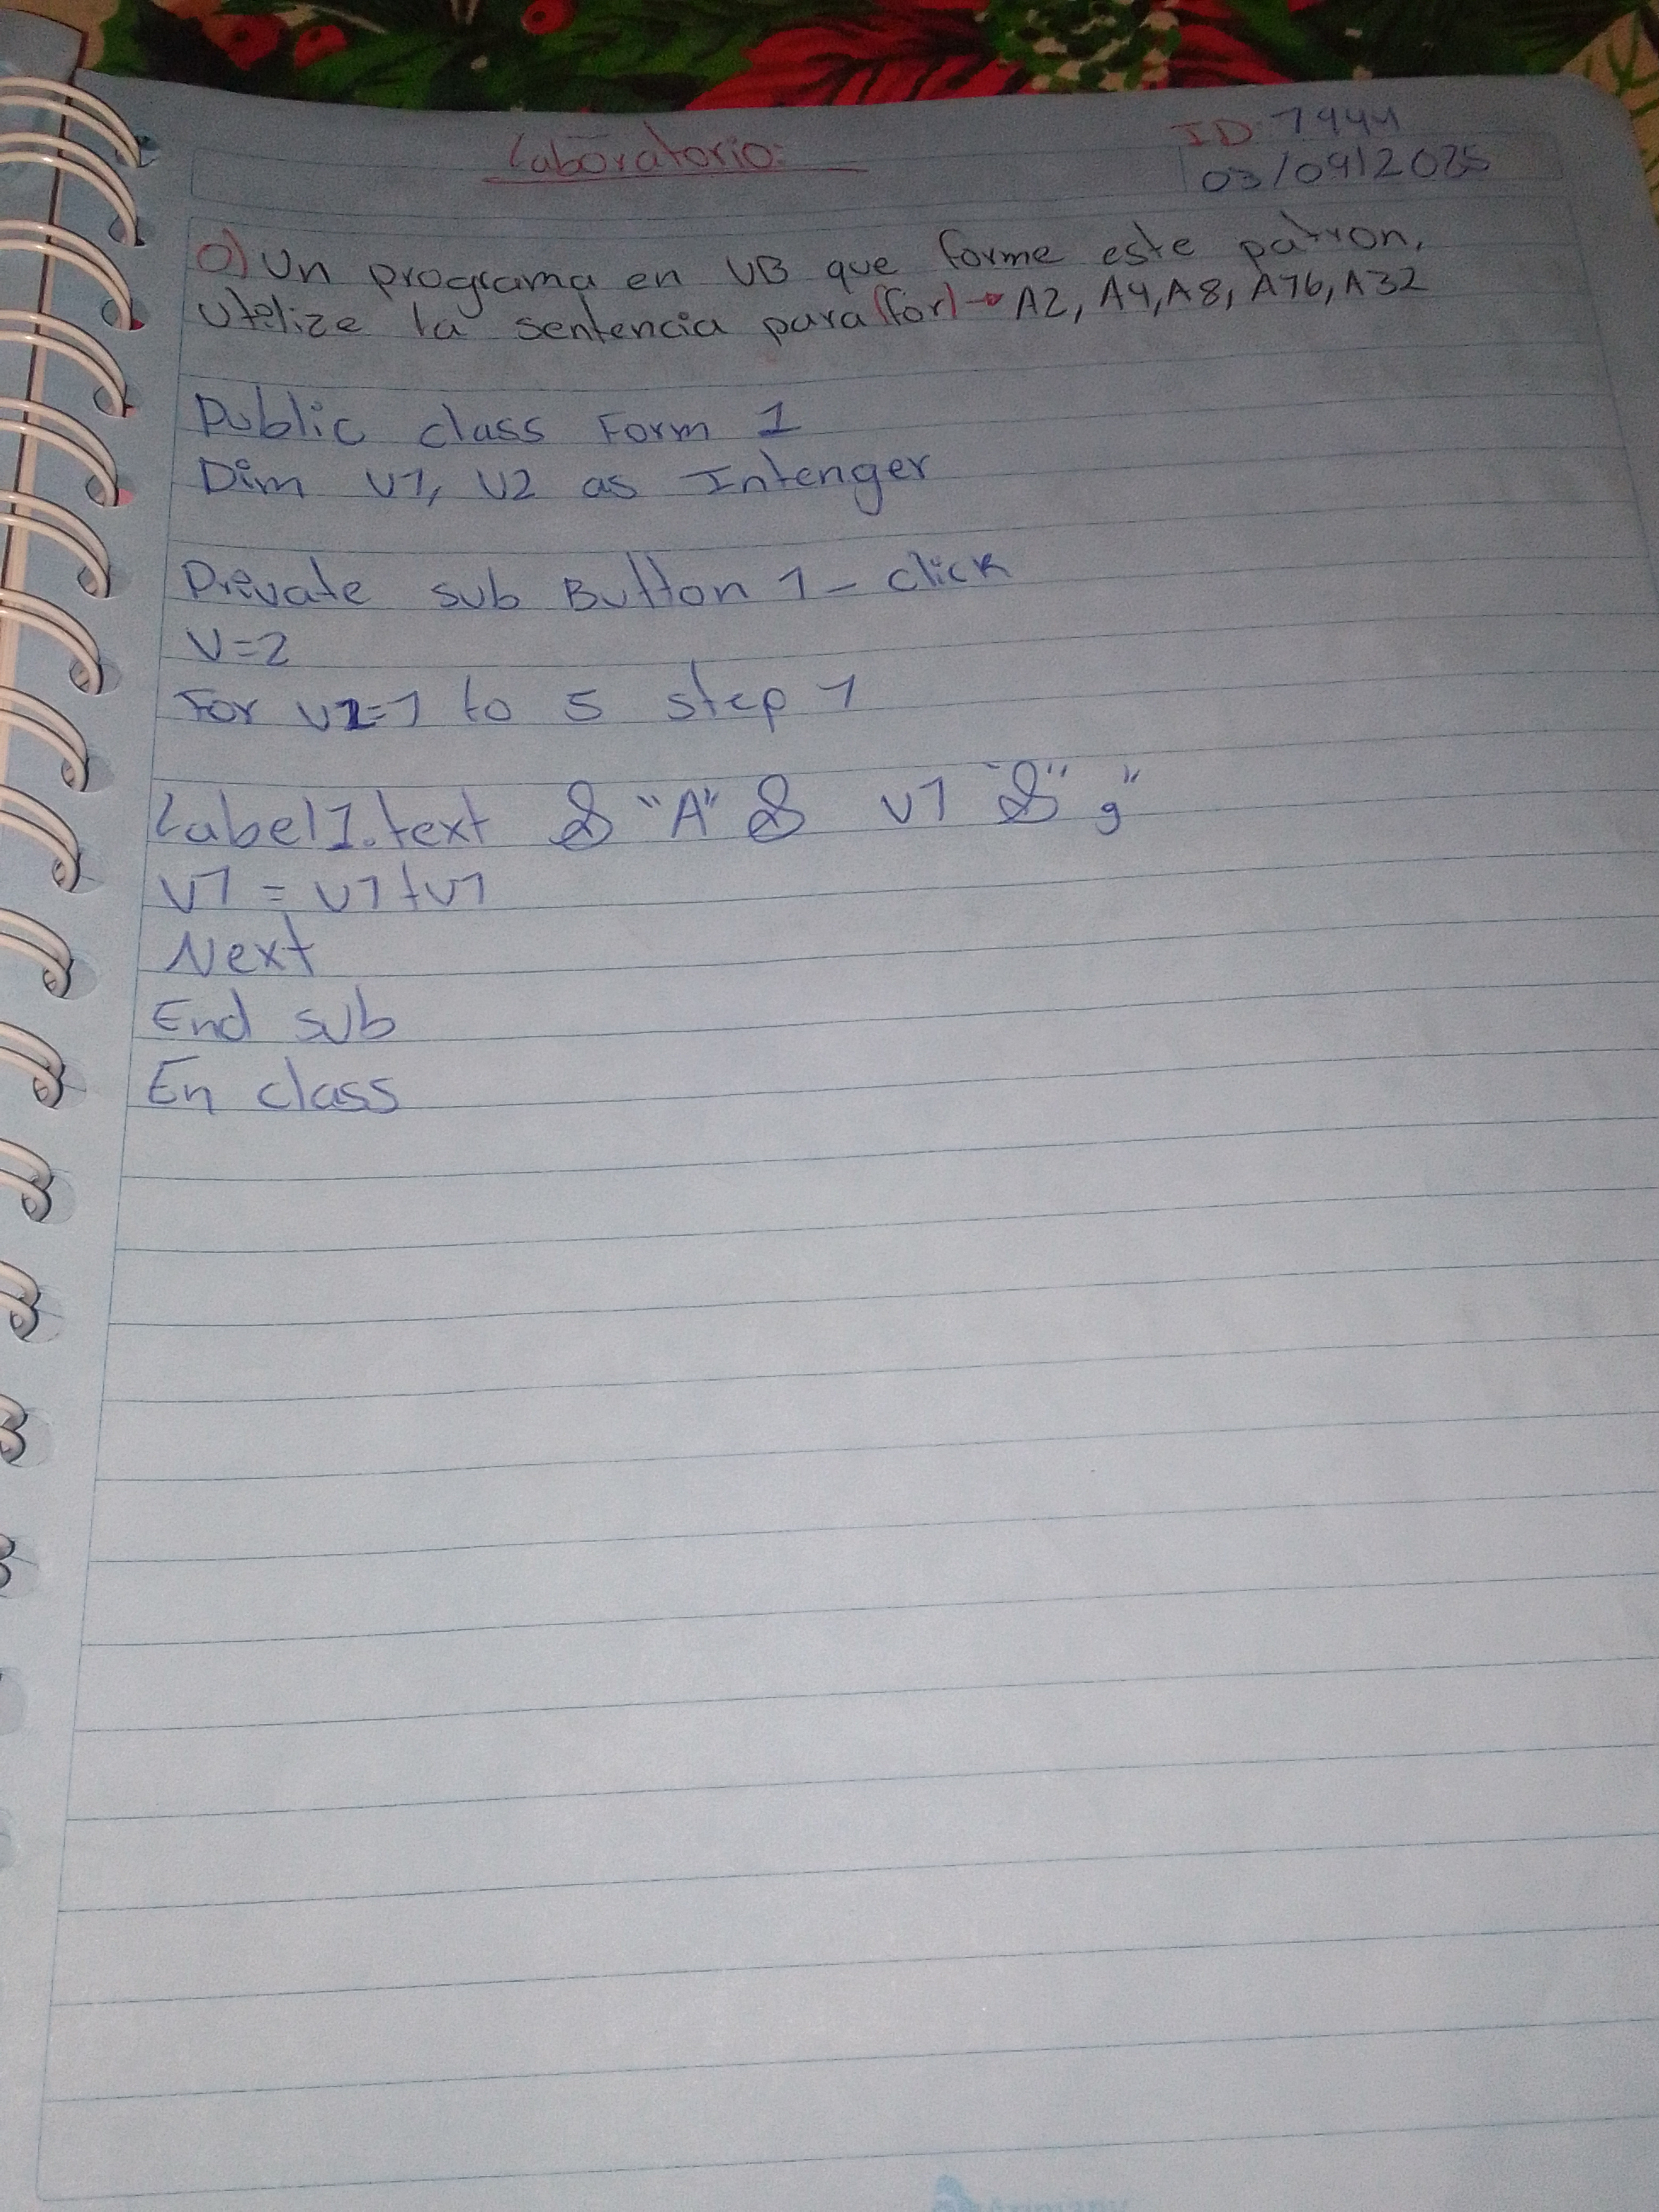 Laboratorio:
ID: 7444
03/09/2025
a) Un programa en VB que forme este patron,
Utilize la sentencia para (for) → A2, A4, A8, A16, A32
Public class Form 1
Dim V1, V2 as Intenger
Private sub Button 1 - click
V=2
For V2=1 to 5 step 1
Label1.text & "A" & V1 "&" ,"
V1 = V1+V1
Next
End sub
En class